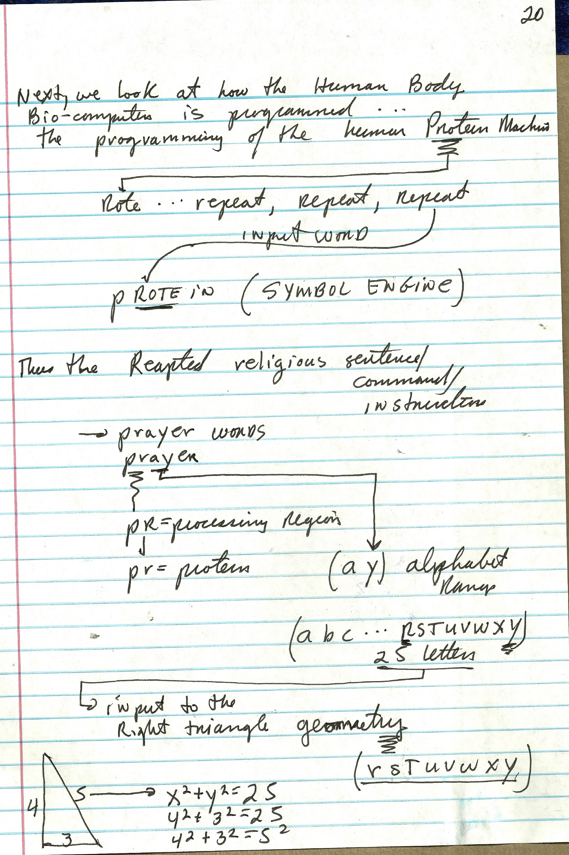 20
Next, we look at how the Human Body
Bio-computer is programmed ...
the programming of the human Protein Machine
Rote ... repeat, repeat, repeat
input word
pROTEin (SYMBOL ENGINE)
Thus the Reapted religious sentence/
command/
instruction
→ prayer words
prayer
pR=processing Region
pr= protein
(ay) alphabet
Range
(abc ... RSTUVWXY)
25 letters
input to the
Right triangle geometry
(rSTUVWXY)
4
5 → x²+y²=25
4²+3²=25
3
4²+3²=5²